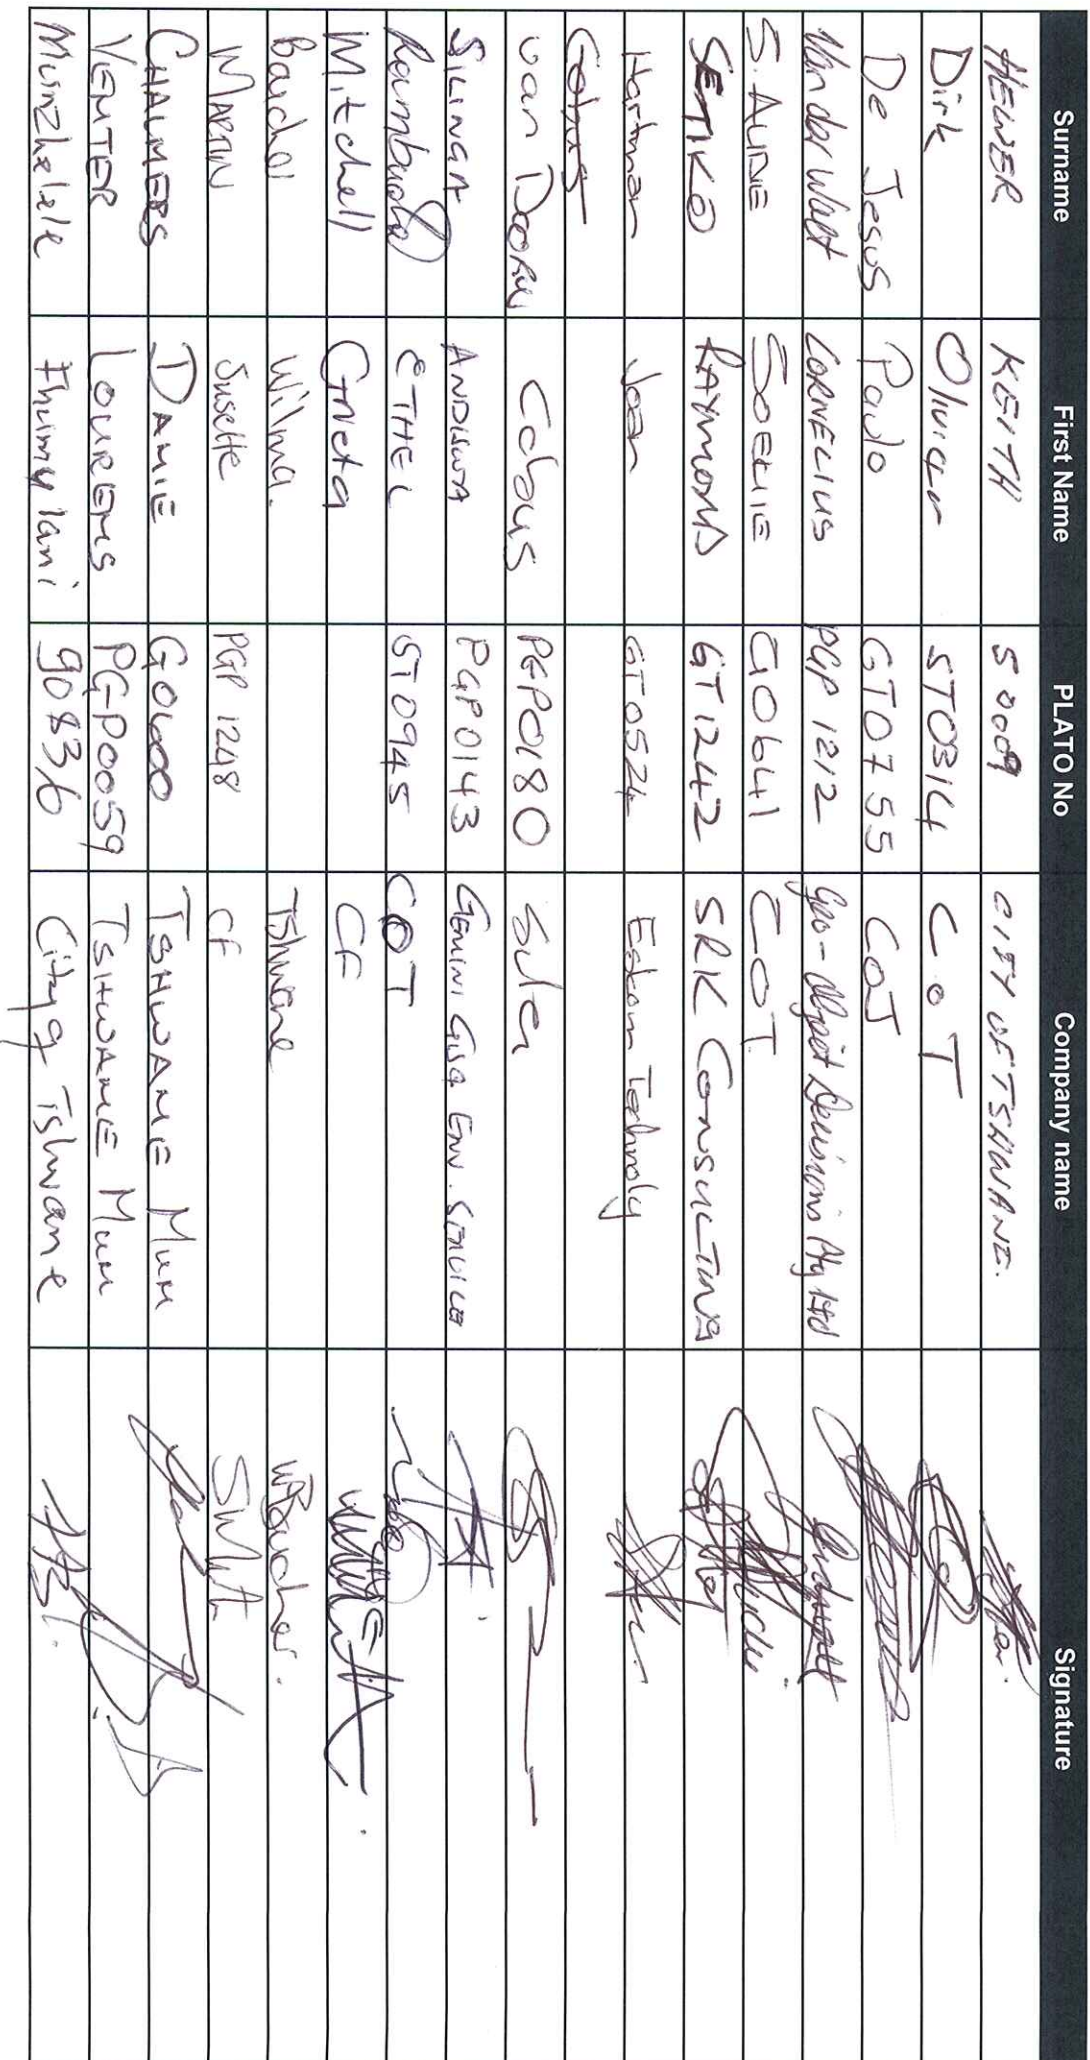 Surname First Name PLATO No Company name Signature
HEWER KEITH S0009 CITY OF TSHWANE.
Dirk Olivier ST0314 C.o.T
De Jesus Paulo GT0755 COJ
Van der Walt CORNELIUS PGP 1212 Geo-Object Decisions Pty Ltd
S.AUNE SOEKIE G0641 COT.
SETIKO RAYMOND GT1242 SRK CONSULTING
Hartman Joan GT0524 Eskom Technoly
Cobus
van DOORN Cobus PGP0180 Suler
SILINGA ANDISWA PGP0143 GEMINI GIS & ENV. SERVICES
ETHEL ST0945 COT
Mitchell Greta CF
Baucher Wilma. Tshwane WBaucher.
MARTIN Susette PGP 1248 CF
CHALMERS DANIE G0600 TSHWANE MUN
VENTER LOURENS PGP0059 TSHWANE MUN
Musnzhelele Fhumulani 90836 City of Tshwane